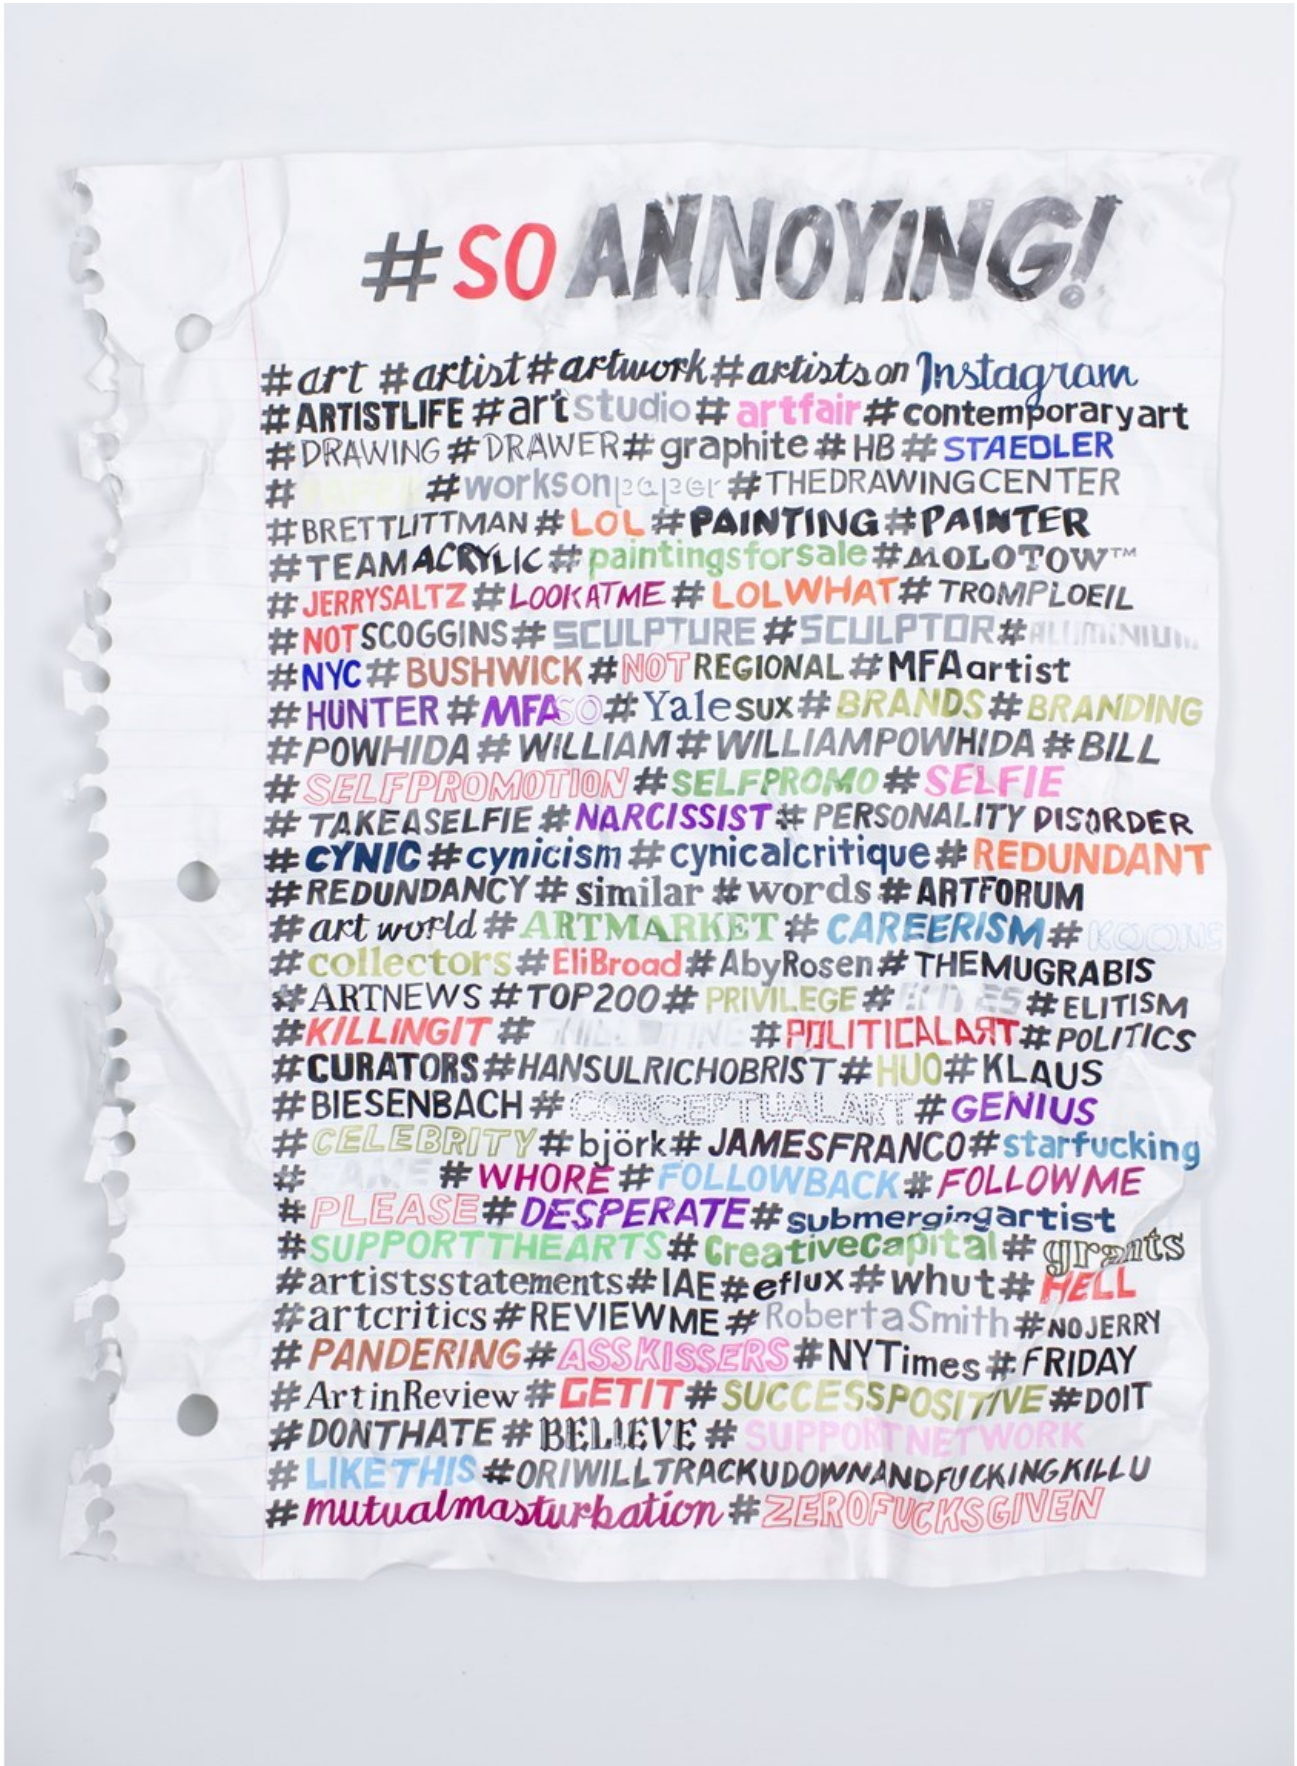 #SO ANNOYING!
#art #artist #artwork #artistson Instagram
#ARTISTLIFE #artstudio # artfair #contemporaryart
#DRAWING #DRAWER # graphite # HB # STAEDLER
# PAPER #worksonpaper #THEDRAWINGCENTER
#BRETTLITTMAN # LOL #PAINTING #PAINTER
#TEAMACRYLIC # paintingsforsale #MOLOTOW™
# JERRYSALTZ # LOOKATME # LOLWHAT # TROMPLOEIL
#NOTSCOGGINS # SCULPTURE #SCULPTOR #ALUMINIUM
#NYC # BUSHWICK #NOTREGIONAL #MFAartist
# HUNTER #MFASO # Yalesux # BRANDS # BRANDING
#POWHIDA # WILLIAM # WILLIAMPOWHIDA #BILL
# SELFPROMOTION #SELFPROMO # SELFIE
# TAKEASELFIE # NARCISSIST # PERSONALITY DISORDER
# CYNIC # cynicism # cynicalcritique # REDUNDANT
#REDUNDANCY # similar # words # ARTFORUM
# art world # ARTMARKET # CAREERISM # KOONS
#collectors #EliBroad #AbyRosen # THEMUGRABIS
#ARTNEWS #TOP200 # PRIVILEGE # ELITES #ELITISM
#KILLINGIT # #POLITICALART #POLITICS
#CURATORS #HANSULRICHOBRIST # HUO # KLAUS
#BIESENBACH # CONCEPTUALART # GENIUS
# CELEBRITY # björk # JAMESFRANCO # starfucking
# FAME # WHORE # FOLLOWBACK # FOLLOWME
# PLEASE # DESPERATE # submergingartist
#SUPPORTTHEARTS # Creativecapital # grants
#artistsstatements #IAE #eflux #whut # HELL
#artcritics #REVIEWME # RobertaSmith #NOJERRY
# PANDERING # ASSKISSERS #NYTimes #FRIDAY
#ArtinReview #GETIT # SUCCESSPOSITIVE #DOIT
#DONTHATE # BELIEVE # SUPPORTNETWORK
# LIKETHIS #ORIWILLTRACKUDOWNANDFUCKINGKILLU
#mutualmasturbation #ZEROFUCKSGIVEN